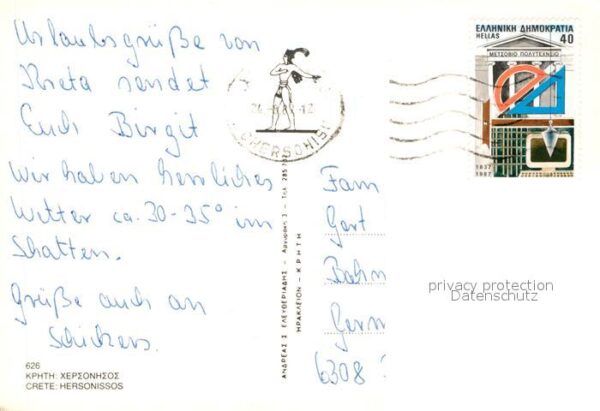 Urlaubsgrüße von
Kreta sendet
Euch Birgit
Wir haben herrliches
Wetter ca. 30-35° im
Schatten.
Grüße auch an
Schickers.
626
ΚΡΗΤΗ: ΧΕΡΣΟΝΗΣΟΣ
CRETE: HERSONISSOS
ΑΝΔΡΕΑΣ Σ ΕΛΕΥΘΕΡΙΑΔΗΣ - Αργυράκη 3 - Τηλ 285
ΗΡΑΚΛΕΙΟΝ - ΚΡΗΤΗ
HERSONISI
ΕΛΛΗΝΙΚΗ ΔΗΜΟΚΡΑΤΙΑ
HELLAS 40
ΜΕΤΣΟΒΙΟ ΠΟΛΥΤΕΧΝΕΙΟ
1837
1987
Fam
Gert
Bahn
Germ
6308
privacy protection
Datenschutz